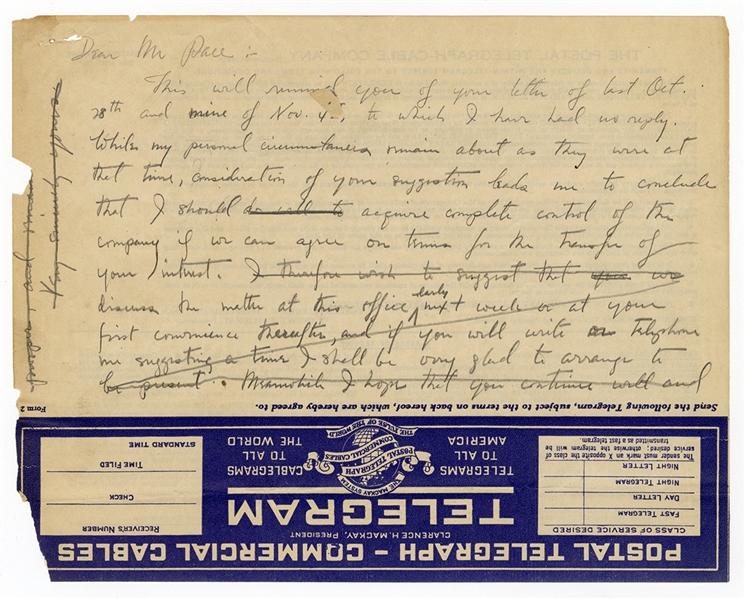 Dear Mr Pace :-
This will remind you of your letter of last Oct.
28th and mine of Nov. 4th, to which I have had no reply.
While my personal circumstances remain about as they were at
that time, consideration of your suggestion leads me to conclude
that I should do well to acquire complete control of the
company if we can agree on terms for the transfer of
your interest. I therefore wish to suggest that you we
discuss the matter at this office early next week or at your
first convenience thereafter, and if you will write or telephone
me suggesting a time I shall be very glad to arrange to
be present. Meanwhile I hope that you continue well and
prosperous, and remain
Very sincerely yours
Send the following Telegram, subject to the terms on back hereof, which are hereby agreed to.
Form 2
POSTAL TELEGRAPH - COMMERCIAL CABLES
CLARENCE H. MACKAY, PRESIDENT
TELEGRAM
RECEIVER'S NUMBER
CHECK
TIME FILED
STANDARD TIME
CLASS OF SERVICE DESIRED
FAST TELEGRAM
DAY LETTER
NIGHT TELEGRAM
NIGHT LETTER
The sender must mark an X opposite the class of
service desired; otherwise the telegram will be
transmitted as a fast telegram.
TELEGRAMS
TO ALL
AMERICA
THE MACKAY SYSTEM
POSTAL TELEGRAPH
COMMERCIAL CABLES
CABLEGRAMS
TO ALL
THE WORLD